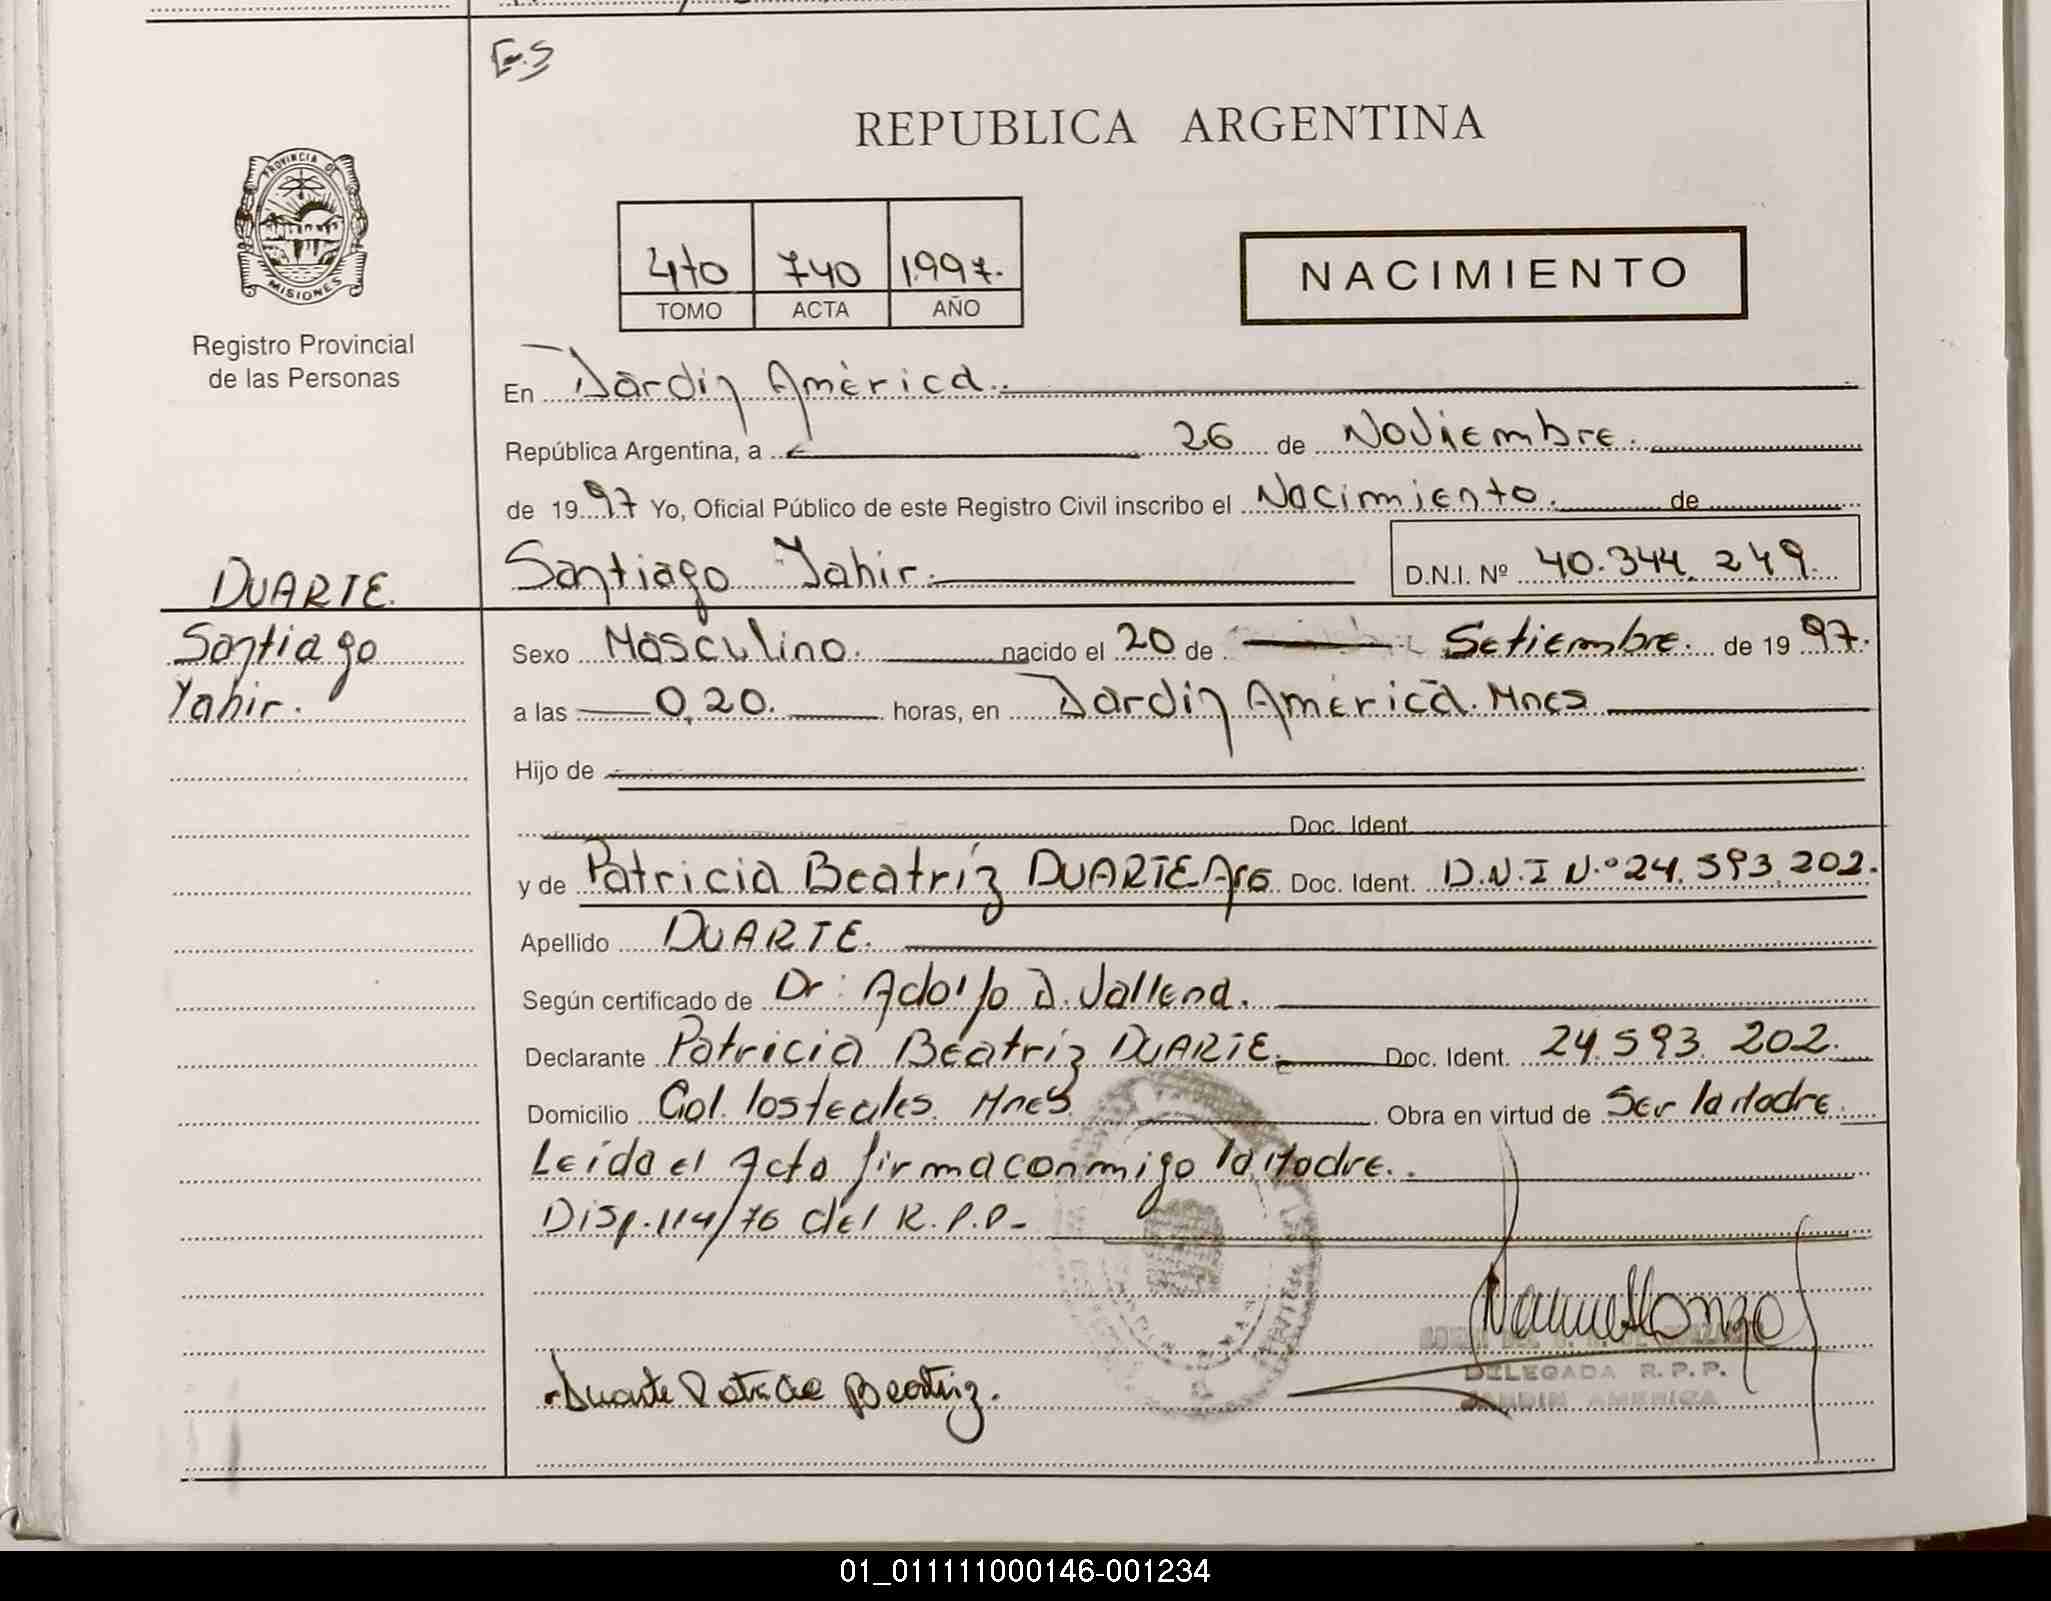 REPUBLICA ARGENTINA
PROVINCIA DE
MISIONES
Registro Provincial
de las Personas
4to 740 1997.
TOMO ACTA AÑO
NACIMIENTO
En Jardín América.
República Argentina, a 26 de Noviembre.
de 1997 Yo, Oficial Público de este Registro Civil inscribo el Nacimiento. de
Santiago Yahir. D.N.I. Nº 40.344.249.
DUARTE.
Santiago
Yahir.
Sexo Masculino. nacido el 20 de Setiembre. de 1997.
a las 0,20. horas, en Jardín América. Mnes
Hijo de
Doc. Ident.
y de Patricia Beatríz DUARTE Arg Doc. Ident. D.N.I N.º 24.593.202.
Apellido DUARTE.
Según certificado de Dr: Adolfo D. Vallena.
Declarante Patricia Beatriz DUARTE. Doc. Ident. 24.593.202.
Domicilio Col. los teales. Mnes Obra en virtud de Ser la Madre.
Leída el Acta firma conmigo la Madre.
Disp. 114/76 del R.P.P.-
Duarte Patricia Beatriz.
DELEGADA R.P.P.
JARDIN AMERICA
01_011111000146-001234